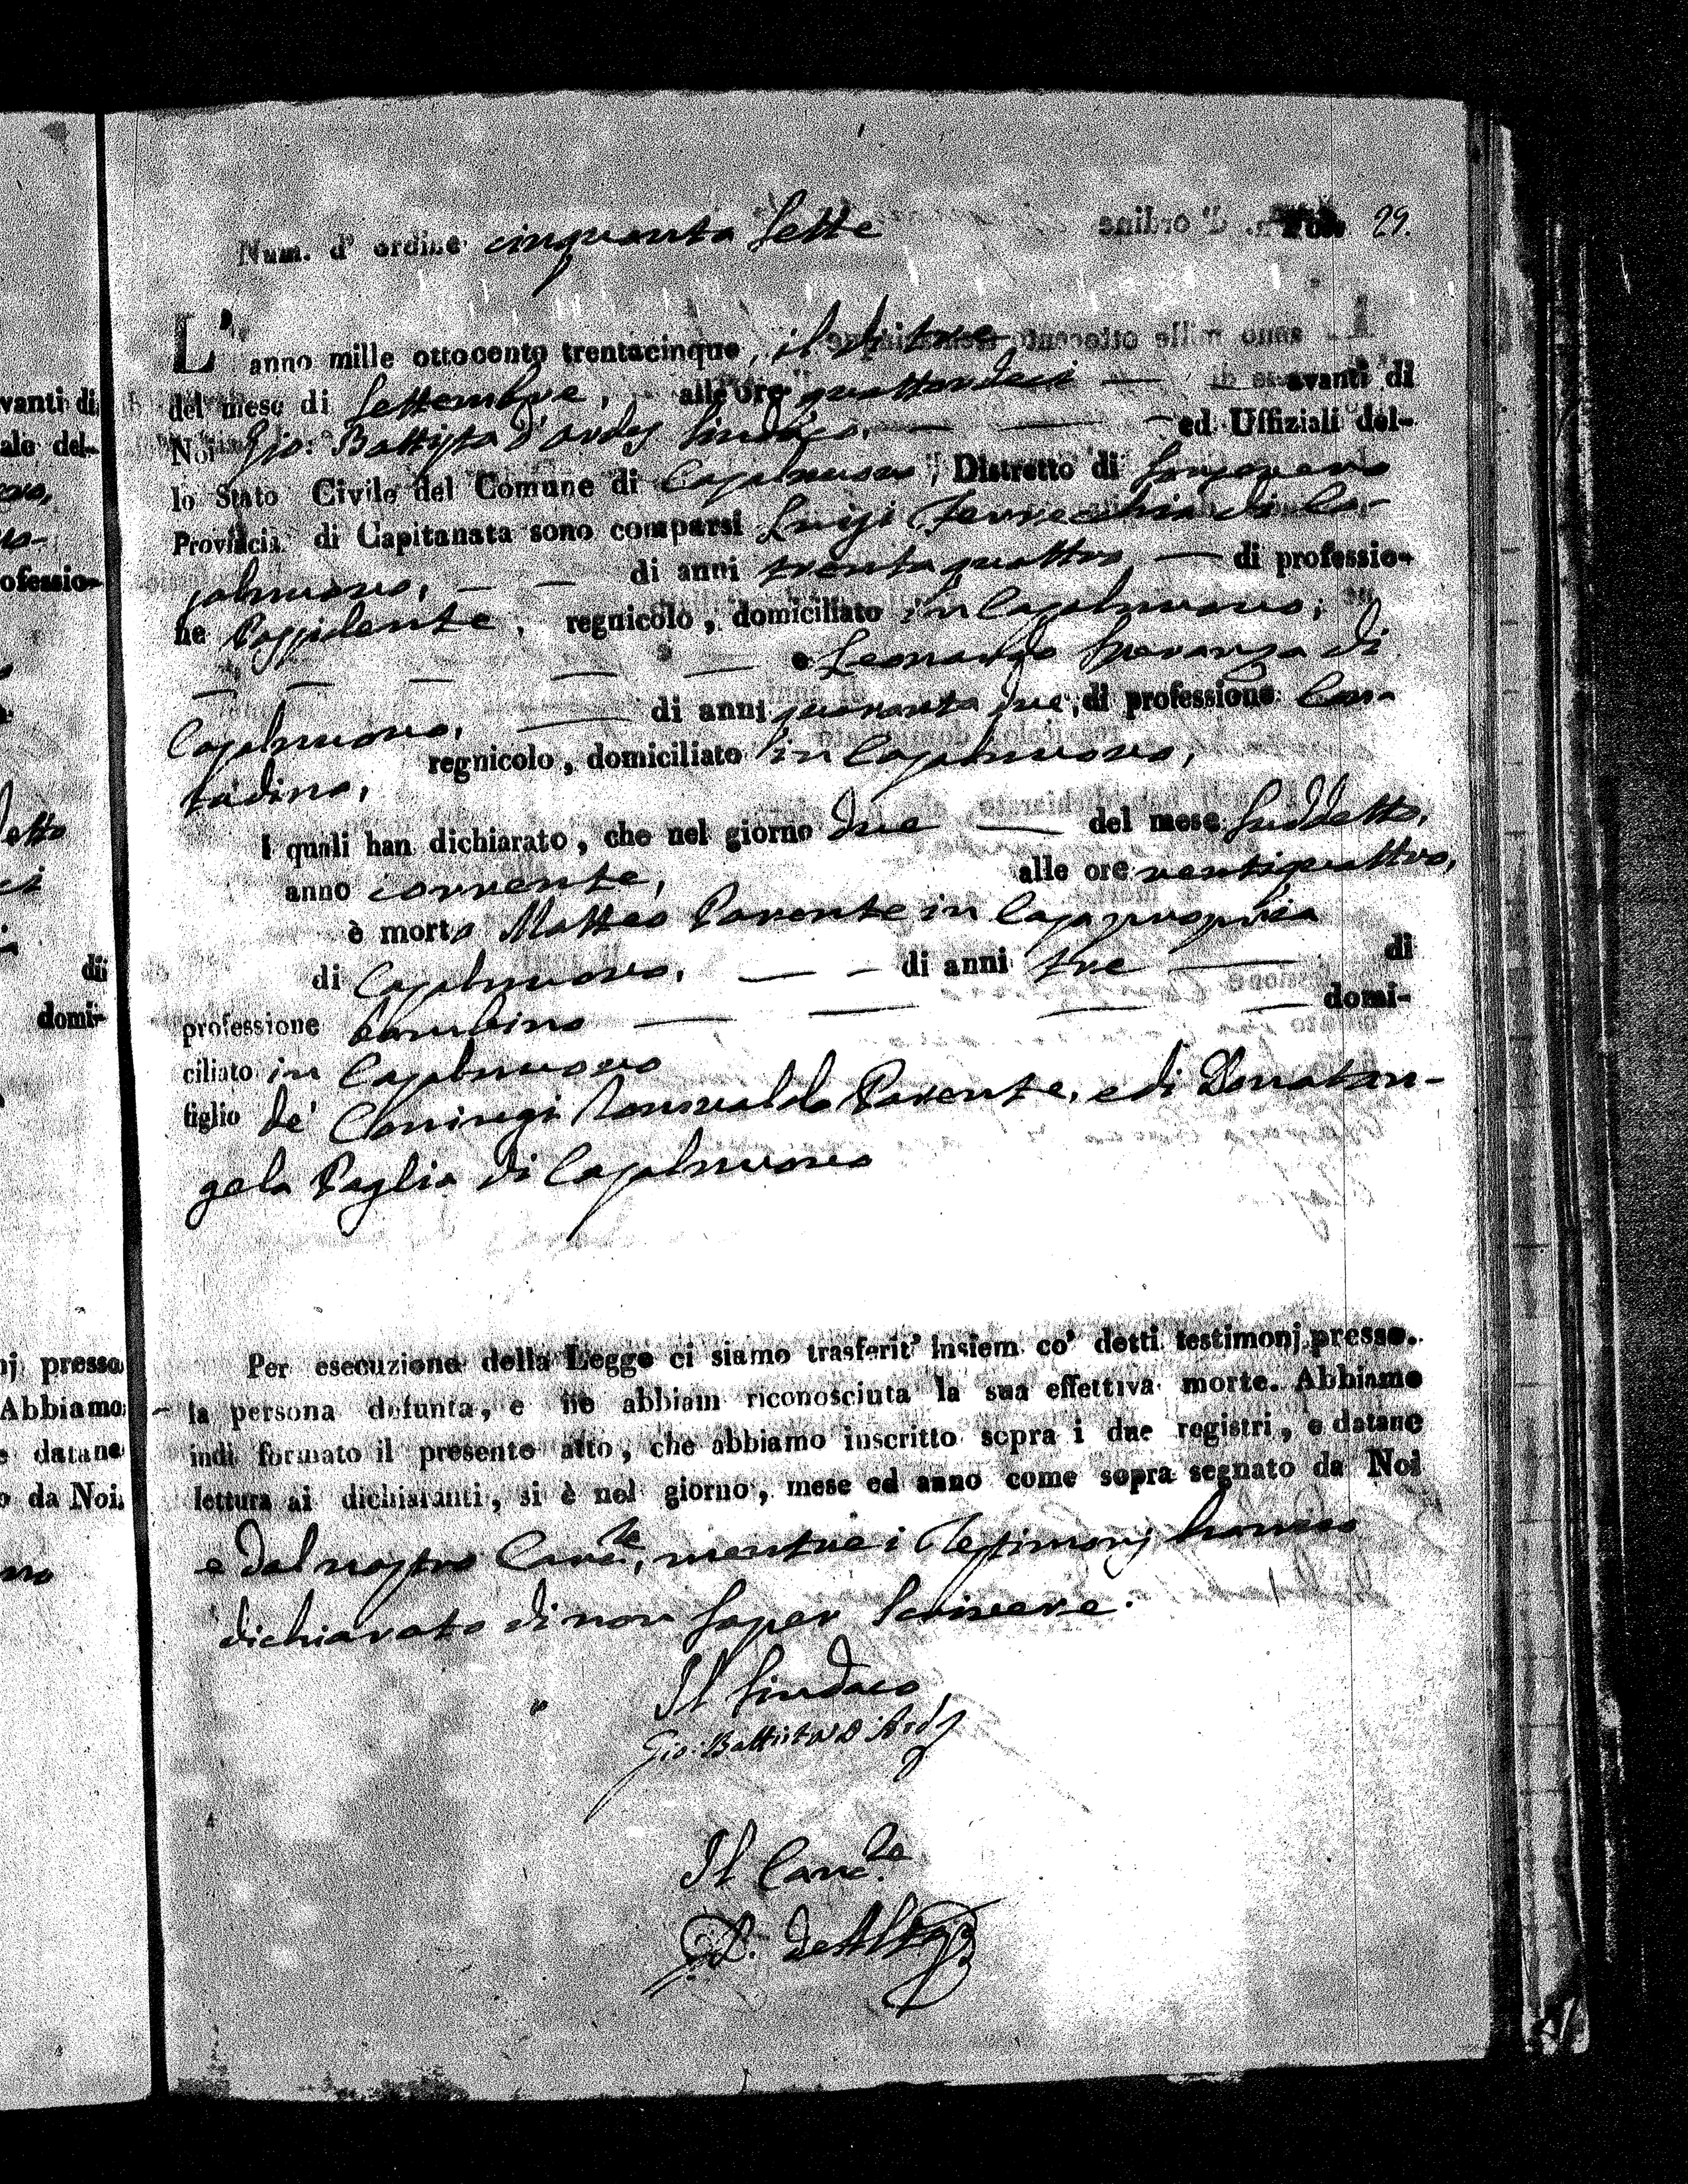 Num. d' ordine cinquanta sette Fol. 29.
L' anno mille ottocento trentacinque, il dì tre
del mese di Settembre, alle ore quattordeci — avanti di
Noi Gio: Battista d'Ardes Sindaco, — — — ed Uffiziali del-
lo Stato Civile del Comune di Casalnuovo, Distretto di
Provincia di Capitanata sono comparsi Luigi Ferrecchia di Ca-
salnuovo, — — di anni trentaquattro — di professio-
ne Possidente, regnicolo, domiciliato in Casalnuovo;
— — — — — e Leonardo Speranza di
Casalnuovo, — di anni quaranta due, di professione Con-
tadino, regnicolo, domiciliato in Casalnuovo,
I quali han dichiarato, che nel giorno due — del mese suddetto,
anno corrente, alle ore ventiquattro,
è morto Matteo Parente in Casa propria
di Casalnuovo, — — di anni tre — di
professione bambino — — — — domi-
ciliato in Casalnuovo
figlio de' Coniugi Parente, e di Donatan-
gela Paglia di Casalnuovo
Per esecuzione della Legge ci siamo trasferit' insiem co' detti testimonj presso.
la persona defunta, e ne abbiam riconosciuta la sua effettiva morte. Abbiamo
indi formato il presente atto, che abbiamo inscritto sopra i due registri, e datane
lettura ai dichiaranti, si è nel giorno, mese ed anno come sopra segnato da Noi
e dal nostro Canc.re, mentre i Testimonj hanno
dichiarato di non saper scrivere.
Il Sindaco
Gio: Battista D'Ards
Il Canc.re